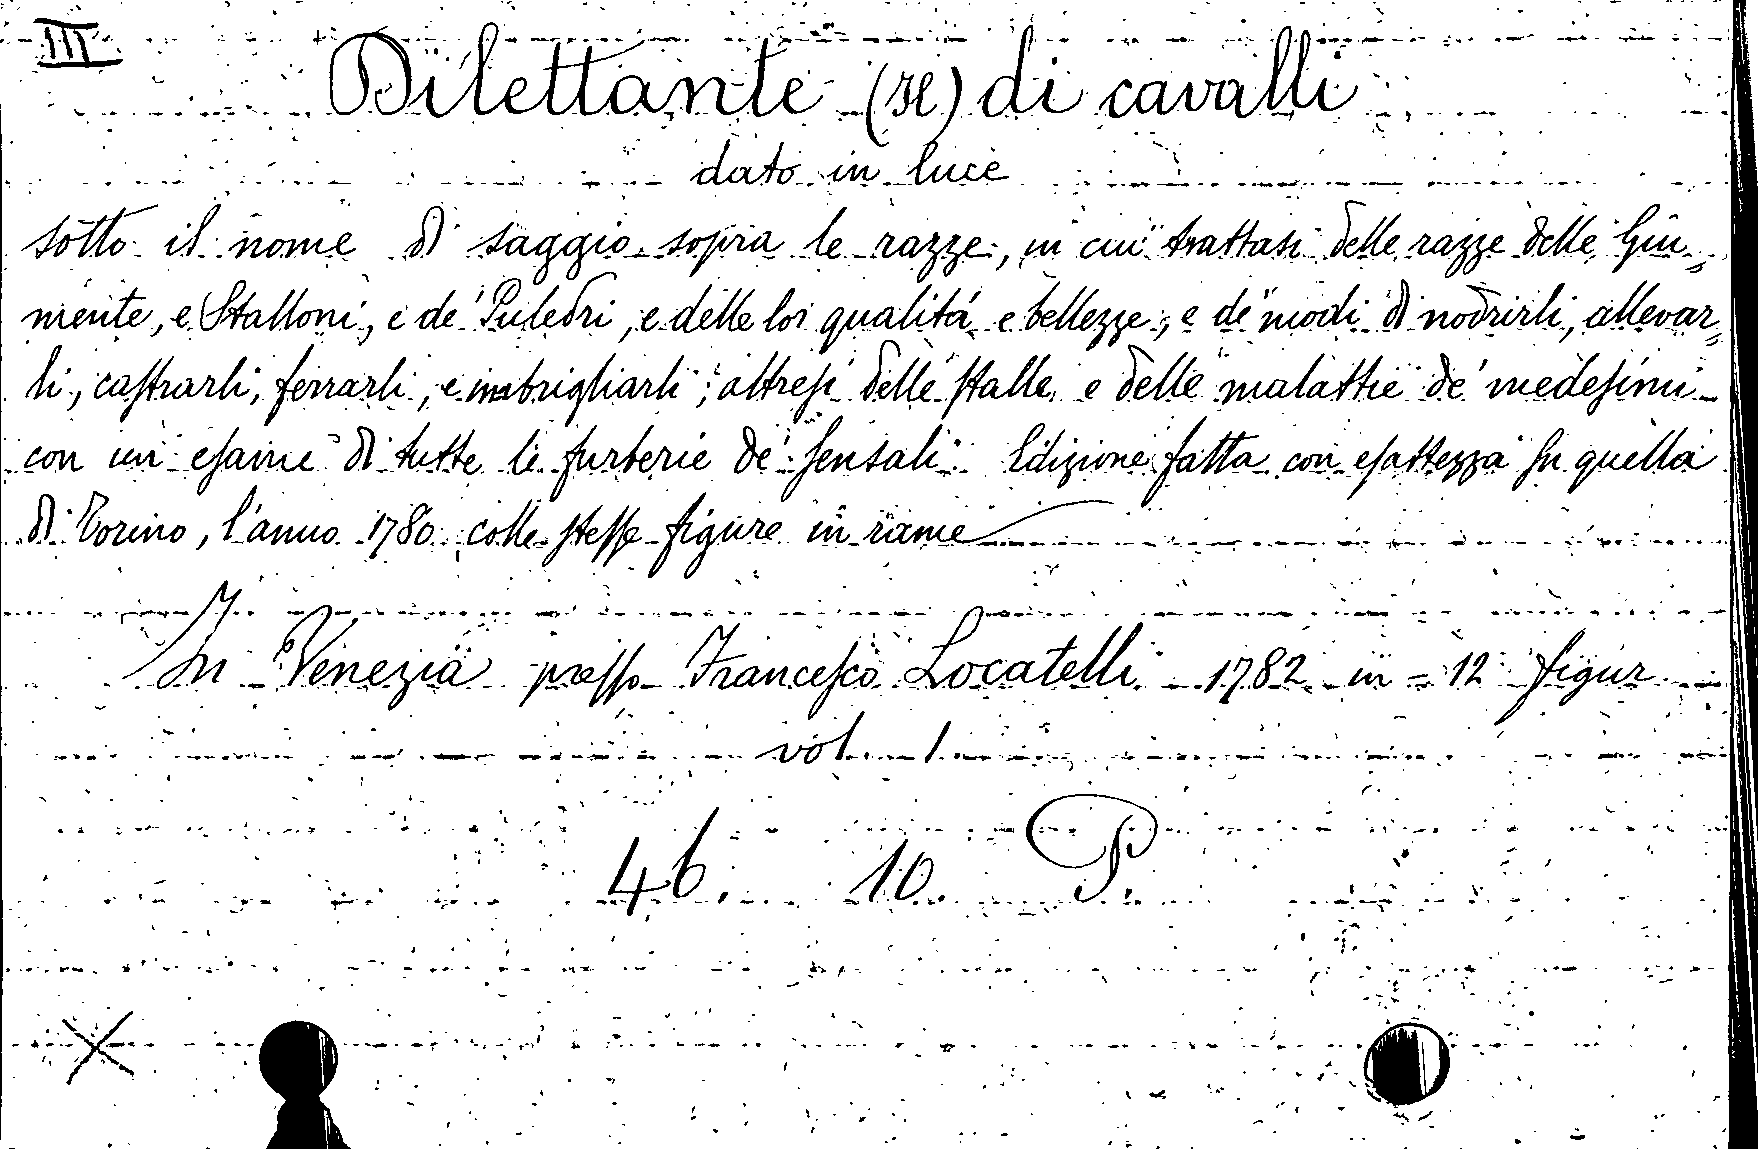 III
Dilettante (Il) di cavalli
dato in luce
sotto il nome di saggio sopra le razze, in cui trattasi delle razze delle Giu-
mente, e Stalloni, e de' Puledri, e delle lor qualitá e bellezze, e de' modi di nodrirli, allevar-
li, castrarli, ferrarli, e imbrigliarli; altresi delle stalle, e delle malattie de' medesimi
con un esame di tutte le furberie de' sensali. Edizione fatta con esattezza su quella
di Torino, l'anno 1780 colle stesse figure in rame
In Venezia presso Francesco Locatelli 1782 in-12 figur
vol. 1
46. 10. P.
X